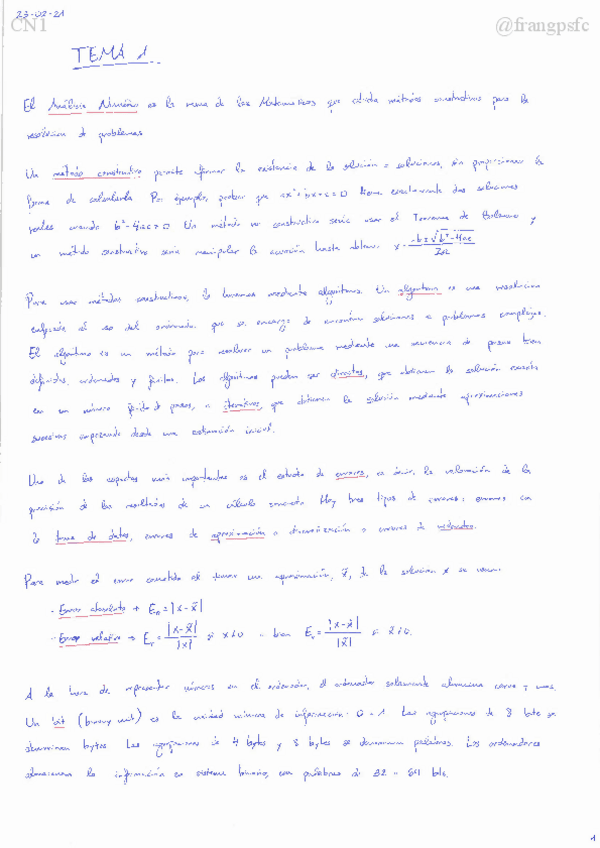 23-02-21
CN1
@frangpsfc
TEMA 1
El Análisis Numérico es la rama de las Matemáticas que estudia métodos constructivos para la
resolución de problemas
Un método constructivo permite afirmar la existencia de la solución o soluciones, sin proporcionar la
forma de calcularla. Por ejemplo, probar que ax²+bx+c=0 tiene exactamente dos soluciones
reales cuando b²-4ac>0. Un método no constructivo sería usar el Teorema de Bolzano y
un método constructivo sería manipular la ecuación hasta obtener x = -b±√b²-4ac / 2a
Para usar métodos constructivos, lo haremos mediante algoritmos. Un algoritmo es una
enfocada al uso del ordenador que se encarga de encontrar soluciones a problemas complejos.
El algoritmo es un método para resolver un problema mediante una secuencia de pasos bien
definidos, ordenados y finitos. Los algoritmos pueden ser directos, que obtienen la solución exacta
en un número finito de pasos, o iterativos, que obtienen la solución mediante aproximaciones
sucesivas empezando desde una estimación inicial.
Uno de los aspectos más importantes es el estudio de errores, es decir, la valoración de la
precisión de los resultados de un cálculo Hay tres tipos de errores: errores en
la toma de datos, errores de aproximación o discretización o errores de redondeo.
Para medir el error cometido al tomar una aproximación, x̃, de la solución x se usan:
· Error absoluto → Ea = |x-x̃|
· Error relativo → Er = |x-x̃| / |x| si x≠0 o bien Er = |x-x̃| / |x̃| si x̃≠0.
A la hora de representar números en el ordenador, el ordenador solamente almacena ceros y unos.
Un bit (binary unit) es la unidad mínima de información: 0 o 1. Las agrupaciones de 8 bits se
denominan bytes. Las agrupaciones de 4 bytes y 8 bytes se denominan palabras. Los ordenadores
almacenan la información en sistema binario, con palabras de 32 o 64 bits.
1